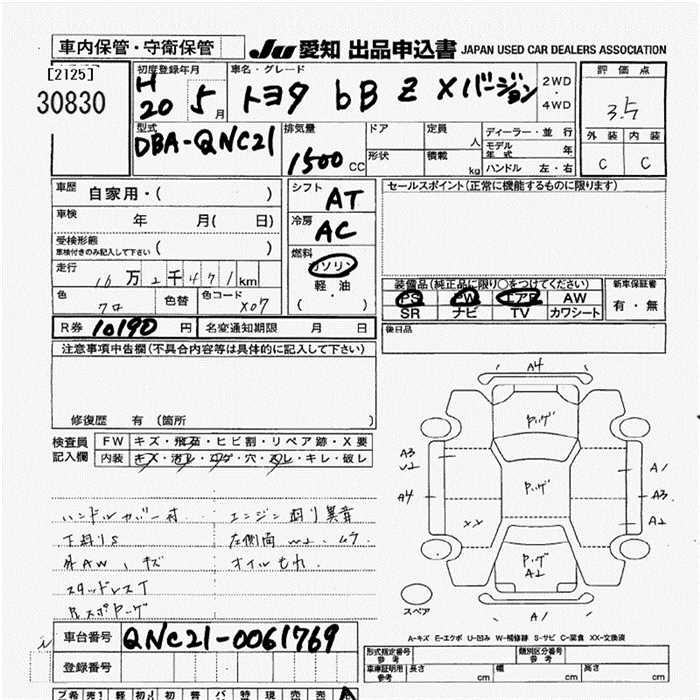 車内保管・守衛保管
Ju 愛知 出品申込書 JAPAN USED CAR DEALERS ASSOCIATION
[2125]
30830
初度登録年月
H
20 5 月
車名・グレード
トヨタ bB Z Xバージョン
2WD
・
4WD
評価点
3.5
外装 内装
C C
型式
DBA-QNC21
排気量
1500 CC
ドア
定員 人
形状
積載 kg
ディーラー・並行
モデル年式 年
ハンドル 左・右
車歴 自家用・( )
車検 年 月( 日)
受検形態
車検付きのみ記入して下さい ( )
走行 10万2千471km
色 クロ 色替 色コード X07
シフト AT
冷房 AC
燃料
ガソリン
・
軽油
・
( )
セールスポイント(正常に機能するものに限ります)
装備品(純正品に限り○をつけてください)
PS PW エアB AW
SR ナビ TV カワシート
新車保証書
有・無
R券 10190 円 名変通知期限 月 日
後日品
注意事項申告欄(不具合内容等は具体的に記入して下さい)
修復歴 有 (箇所 )
検査員
記入欄
FW キズ・飛石・ヒビ割・リペア跡・X要
内装 キズ・汚レ・コゲ・穴・スレ・キレ・破レ
ハンドルカバー付 エンジン廻り異音
下廻りS 左側面
外AW、キズ オイルもれ
スタッドレスT
A4
A3
A4
XX
A1
A3
A2
A2
A1
スペア
A-キズ E-エクボ U-凹み W-補修跡 S-サビ C-腐食 XX-交換済
車台番号 QNC21-0061769
登録番号
形式指定番号
参考
類別区分番号
参考
車庫証明用
参考
長さ cm 幅 cm 高さ cm